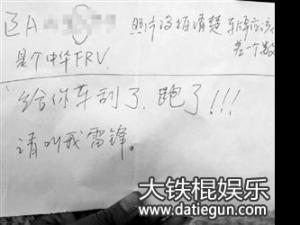 辽A
照片没拍清楚 车牌应该
是个中华FRV.
是一个
给你车刮了.跑了!!!
请叫我雷锋。
大铁棍娱乐
www.datiegun.com